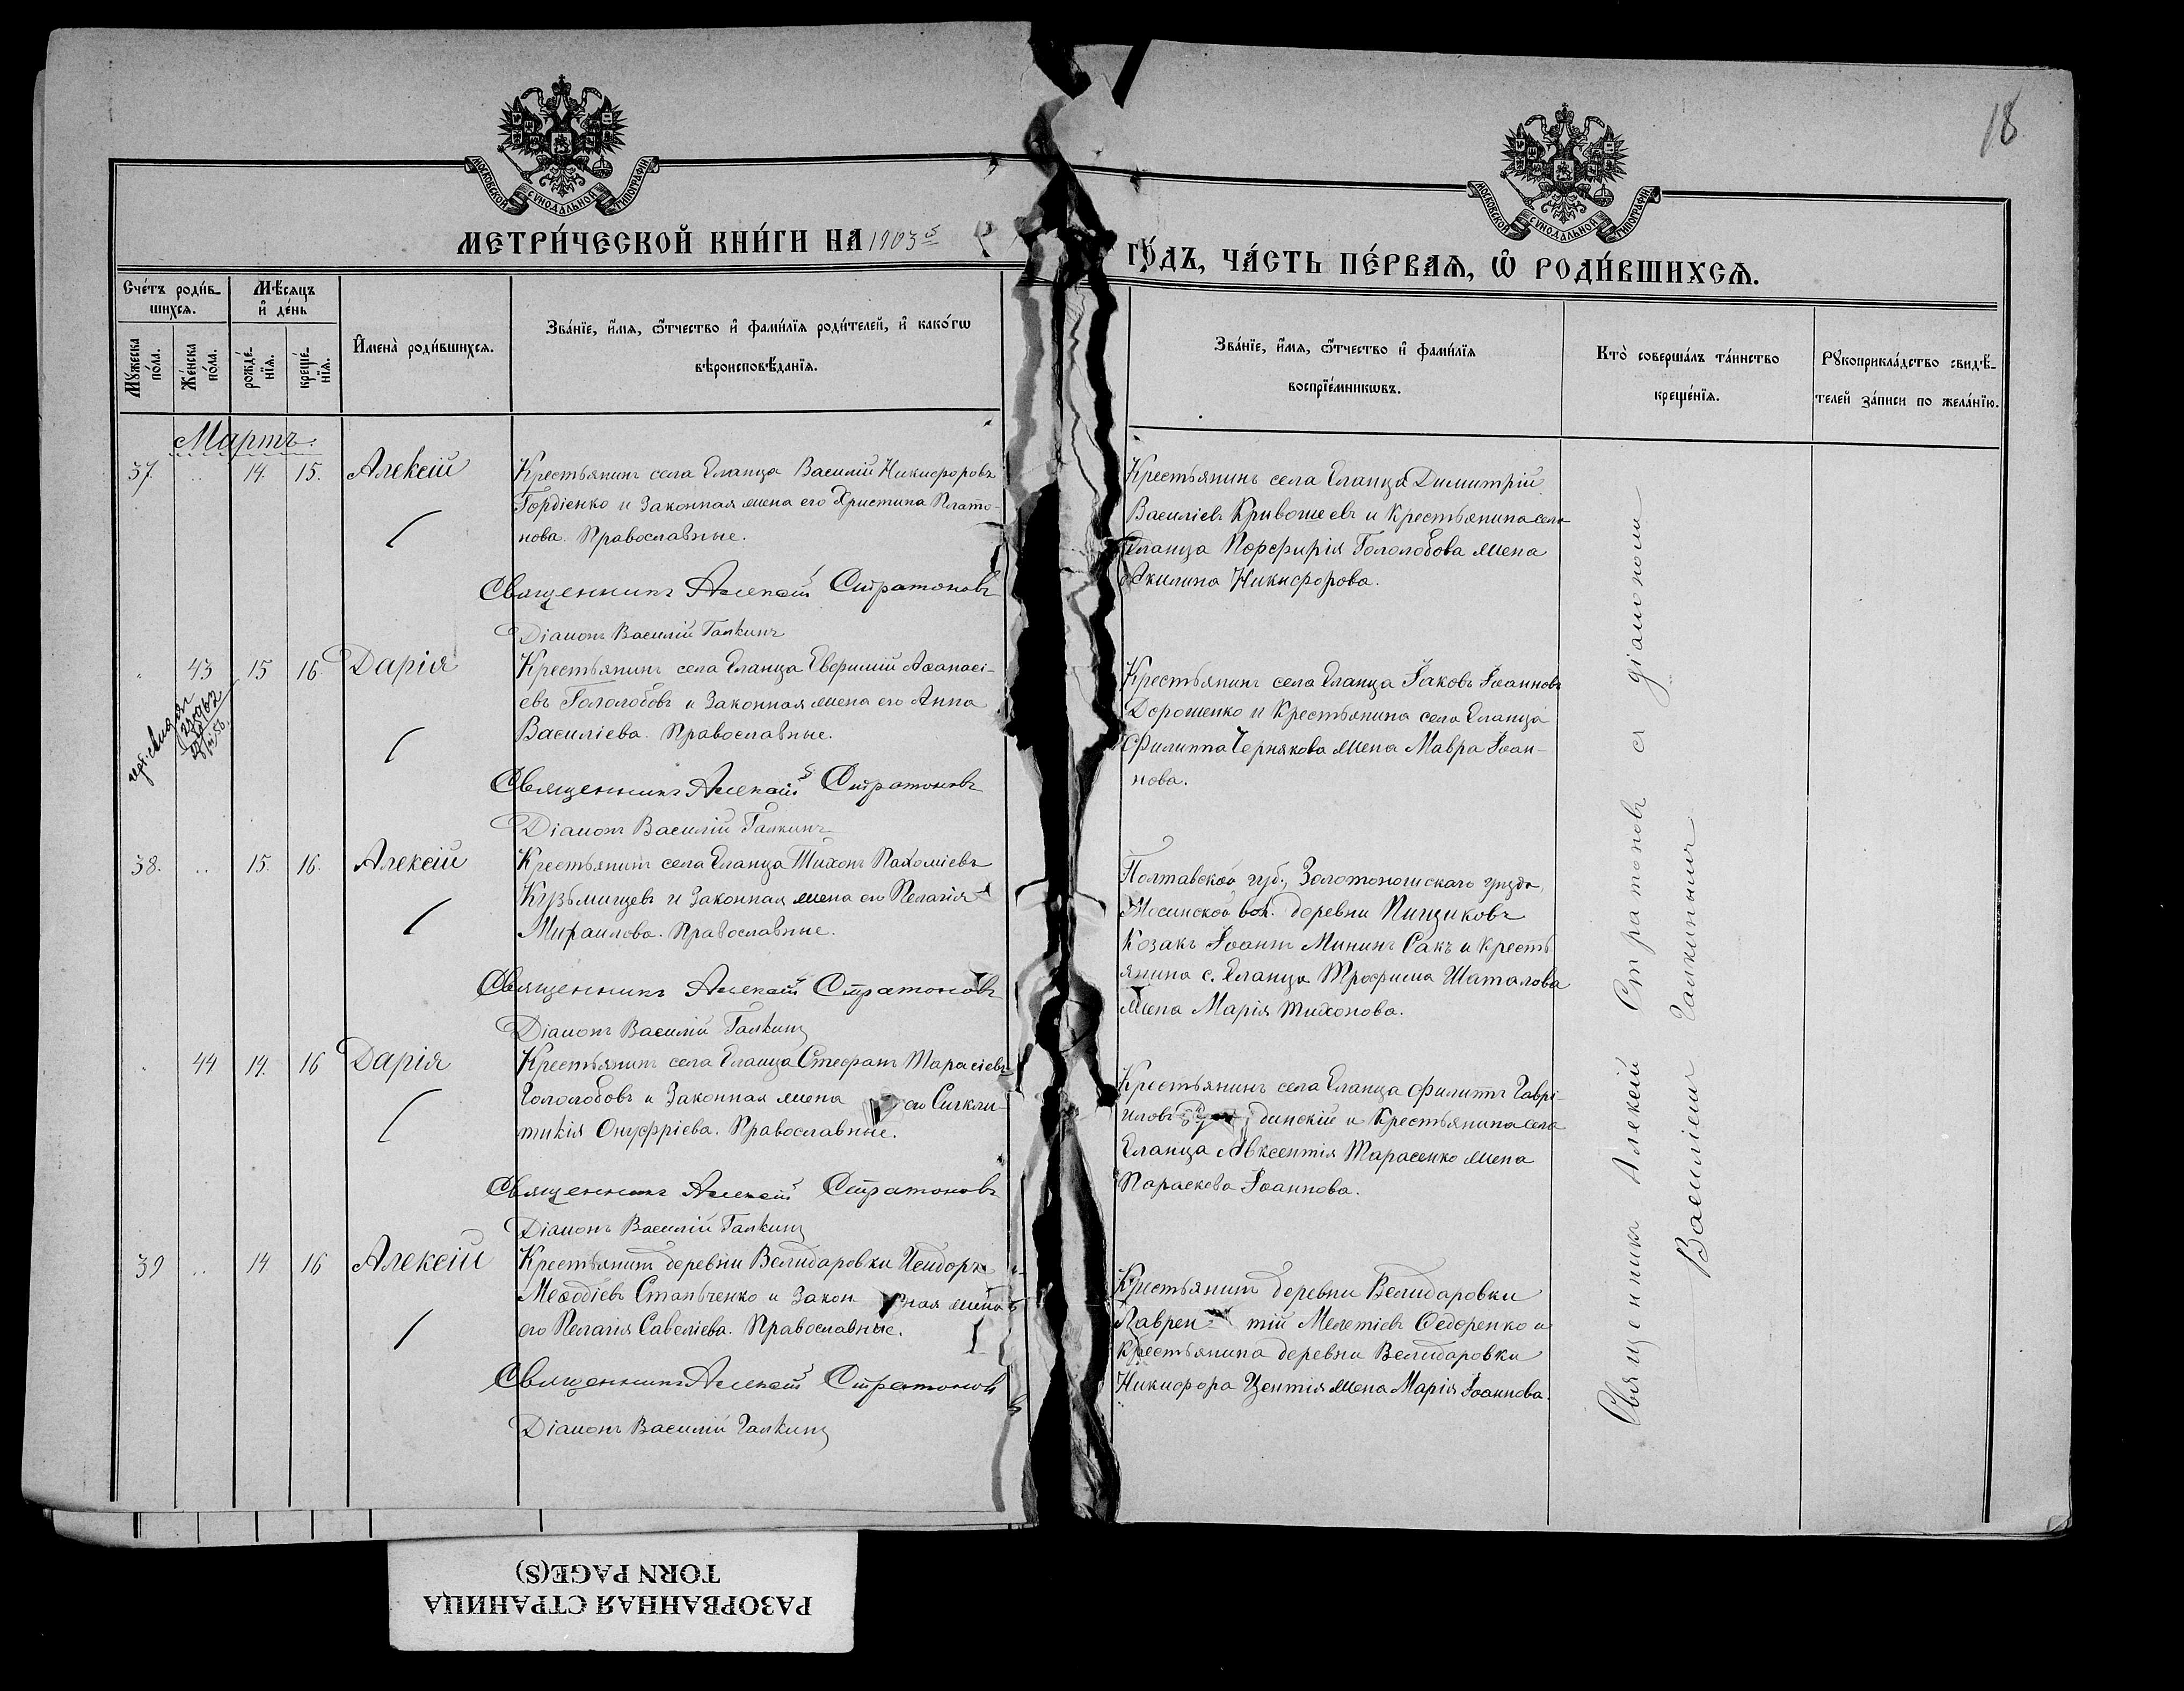 18
МОСКОВСКОЙ СѴНОДАЛЬНОЙ ТИПОГРАФІИ
МОСКОВСКОЙ СѴНОДАЛЬНОЙ ТИПОГРАФІИ
МЕТРИ́ЧЕСКОЙ КНИ́ГИ НА 1903й
ГО́ДЪ, ЧА́СТЬ ПЕ́РВАѦ, Ѡ҆ РОДИ́ВШИХСѦ.
Сче́тъ роди́в-
шихсѧ.
Мѣ́сѧцъ
и҆ де́нь
Мꙋ́жеска
по́ла.
Же́нска
по́ла.
рожде́-
нїѧ.
креще́-
нїѧ.
И҆мена̀ роди́вшихсѧ.
Зва́нїе, и҆́мѧ, ѻ҆́тчество и҆ фами́лїѧ роди́телей, и҆ како́гѡ
вѣроисповѣ́данїѧ.
Зва́нїе, и҆́мѧ, ѻ҆́тчество и҆ фами́лїѧ
воспрїе́мникѡвъ.
Кто̀ соверша́лъ та́инство
креще́нїѧ.
Рꙋкоприкла́дство свидѣ́-
телей за́писи по жела́нїю.
Мартъ.
37. .. 14. 15. Алексій
Крестьянинъ села Еланца Василій Никифоровъ
Гордіенко и законная жена его Христина Плато-
нова. Православные.
Священникъ Алексій Стратоновъ
Діаконъ Василій Галкинъ
Крестьянинъ села Еланца Димитрій
Василіевъ Кривошеевъ и крестьянина села
Еланца Порфирія Гололобова жена
Акилина Никифорова.
43 15 16. Дарія
Крестьянинъ села Еланца Евфимій Аѳанасі-
евъ Гололобовъ и законная жена его Анна
Василіева. Православные.
Священникъ Алексій Стратоновъ
Діаконъ Василій Галкинъ
Крестьянинъ села Еланца Іаковъ Іоанновъ
Дорошенко и крестьянина села Еланца
Филиппа Чернякова жена Мавра Іоан-
нова.
38. .. 15. 16. Алексій
Крестьянинъ села Еланца Тихонъ Пахоміевъ
Кузьминцевъ и законная жена его Пелагія
Михаилова. Православные.
Священникъ Алексій Стратоновъ
Діаконъ Василій Галкинъ
Полтавской губ., Золотоношскаго уѣзда,
вол. деревни Пищиковъ
козакъ Іоаннъ Мининъ Сакъ и кресть
янина с. Еланца Трофима Шаталова
жена Марія Тихонова.
44 14. 16 Дарія
Крестьянинъ села Еланца Стефанъ Тарасіевъ
Гололобовъ и законная жена его Сигкли-
тикія Онуфріева. Православные.
Священникъ Алексій Стратоновъ
Діаконъ Василій Галкинъ
Крестьянинъ села Еланца Филиппъ Гаврі-
иловъ динскій и крестьянина села
Еланца Авксентія Тарасенко жена
Параскева Іоаннова.
39 .. 14 16 Алексій
Крестьянинъ деревни Велидаровки Исидоръ
Меѳодіевъ Станьченко и закон ная жена
его Пелагія Савеліева. Православные.
Священникъ Алексій Стратоновъ
Діаконъ Василій Галкинъ
Крестьянинъ деревни Велидаровки
Лаврен тій Мелетіевъ Ѳедоренко и
крестьянина деревни Велидаровки
Никифора жена Марія Іоаннова.
Священникъ Алексій Стратоновъ съ діакономъ
Василіемъ Галкинымъ
РАЗОРВАННАЯ СТРАНИЦА
TORN PAGE(S)